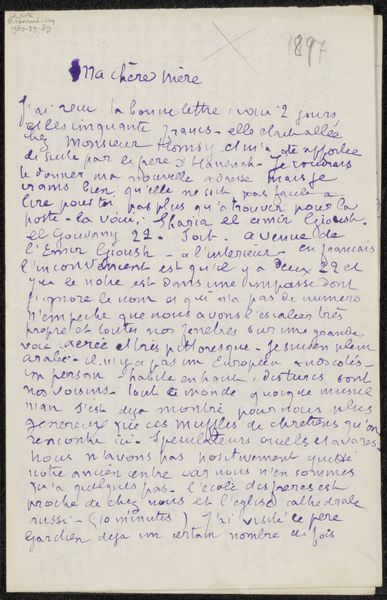 1980-39-89
1897
Ma chère Mère
J'ai reçu la bonne lettre voici 2 jours
et les cinquante francs - elle était allée
chez Monsieur Homsy et m'a été apportée
de suite par le père d'Hanenah. Je voudrais
te donner ma nouvelle adresse mais je
crains bien qu'elle ne soit pas facile à
lire pour toi pas plus qu'à trouver pour la
poste - la voici: Sharia el emir Gioush
el Gouwany 22. Soit. avenue de
l'Emir Gioush - à l'intérieur - en français
l'inconvénient est qu'il y a deux 22 et
que le notre est dans une impasse dont
j'ignore le nom et qui n'a pas de numero
n'empeche que nous avons l'escalier très
propre et toutes nos fenetres sur une grande
voie aerée et très pittoresque - Je suis en plein
arabe - il n'y a pas un Européen à nos cotés -
un persan - habite en haut, des turcs sont
nos voisins - tout le monde quoique musul
man s'est deja montré pour nous plus
genereux que ces muffles de chretiens qu'on
rencontre ici - Speculateurs cruels et avares
Nous n'avons pas positivement quitté
notre ancien centre car nous n'en sommes
qu'à quelques pas - l'école des peres est
proche de chez nous et l'eglise cathedrale
aussi - (10 minutes) J'ai visité le pere
Gardien deja un certain nombre de fois